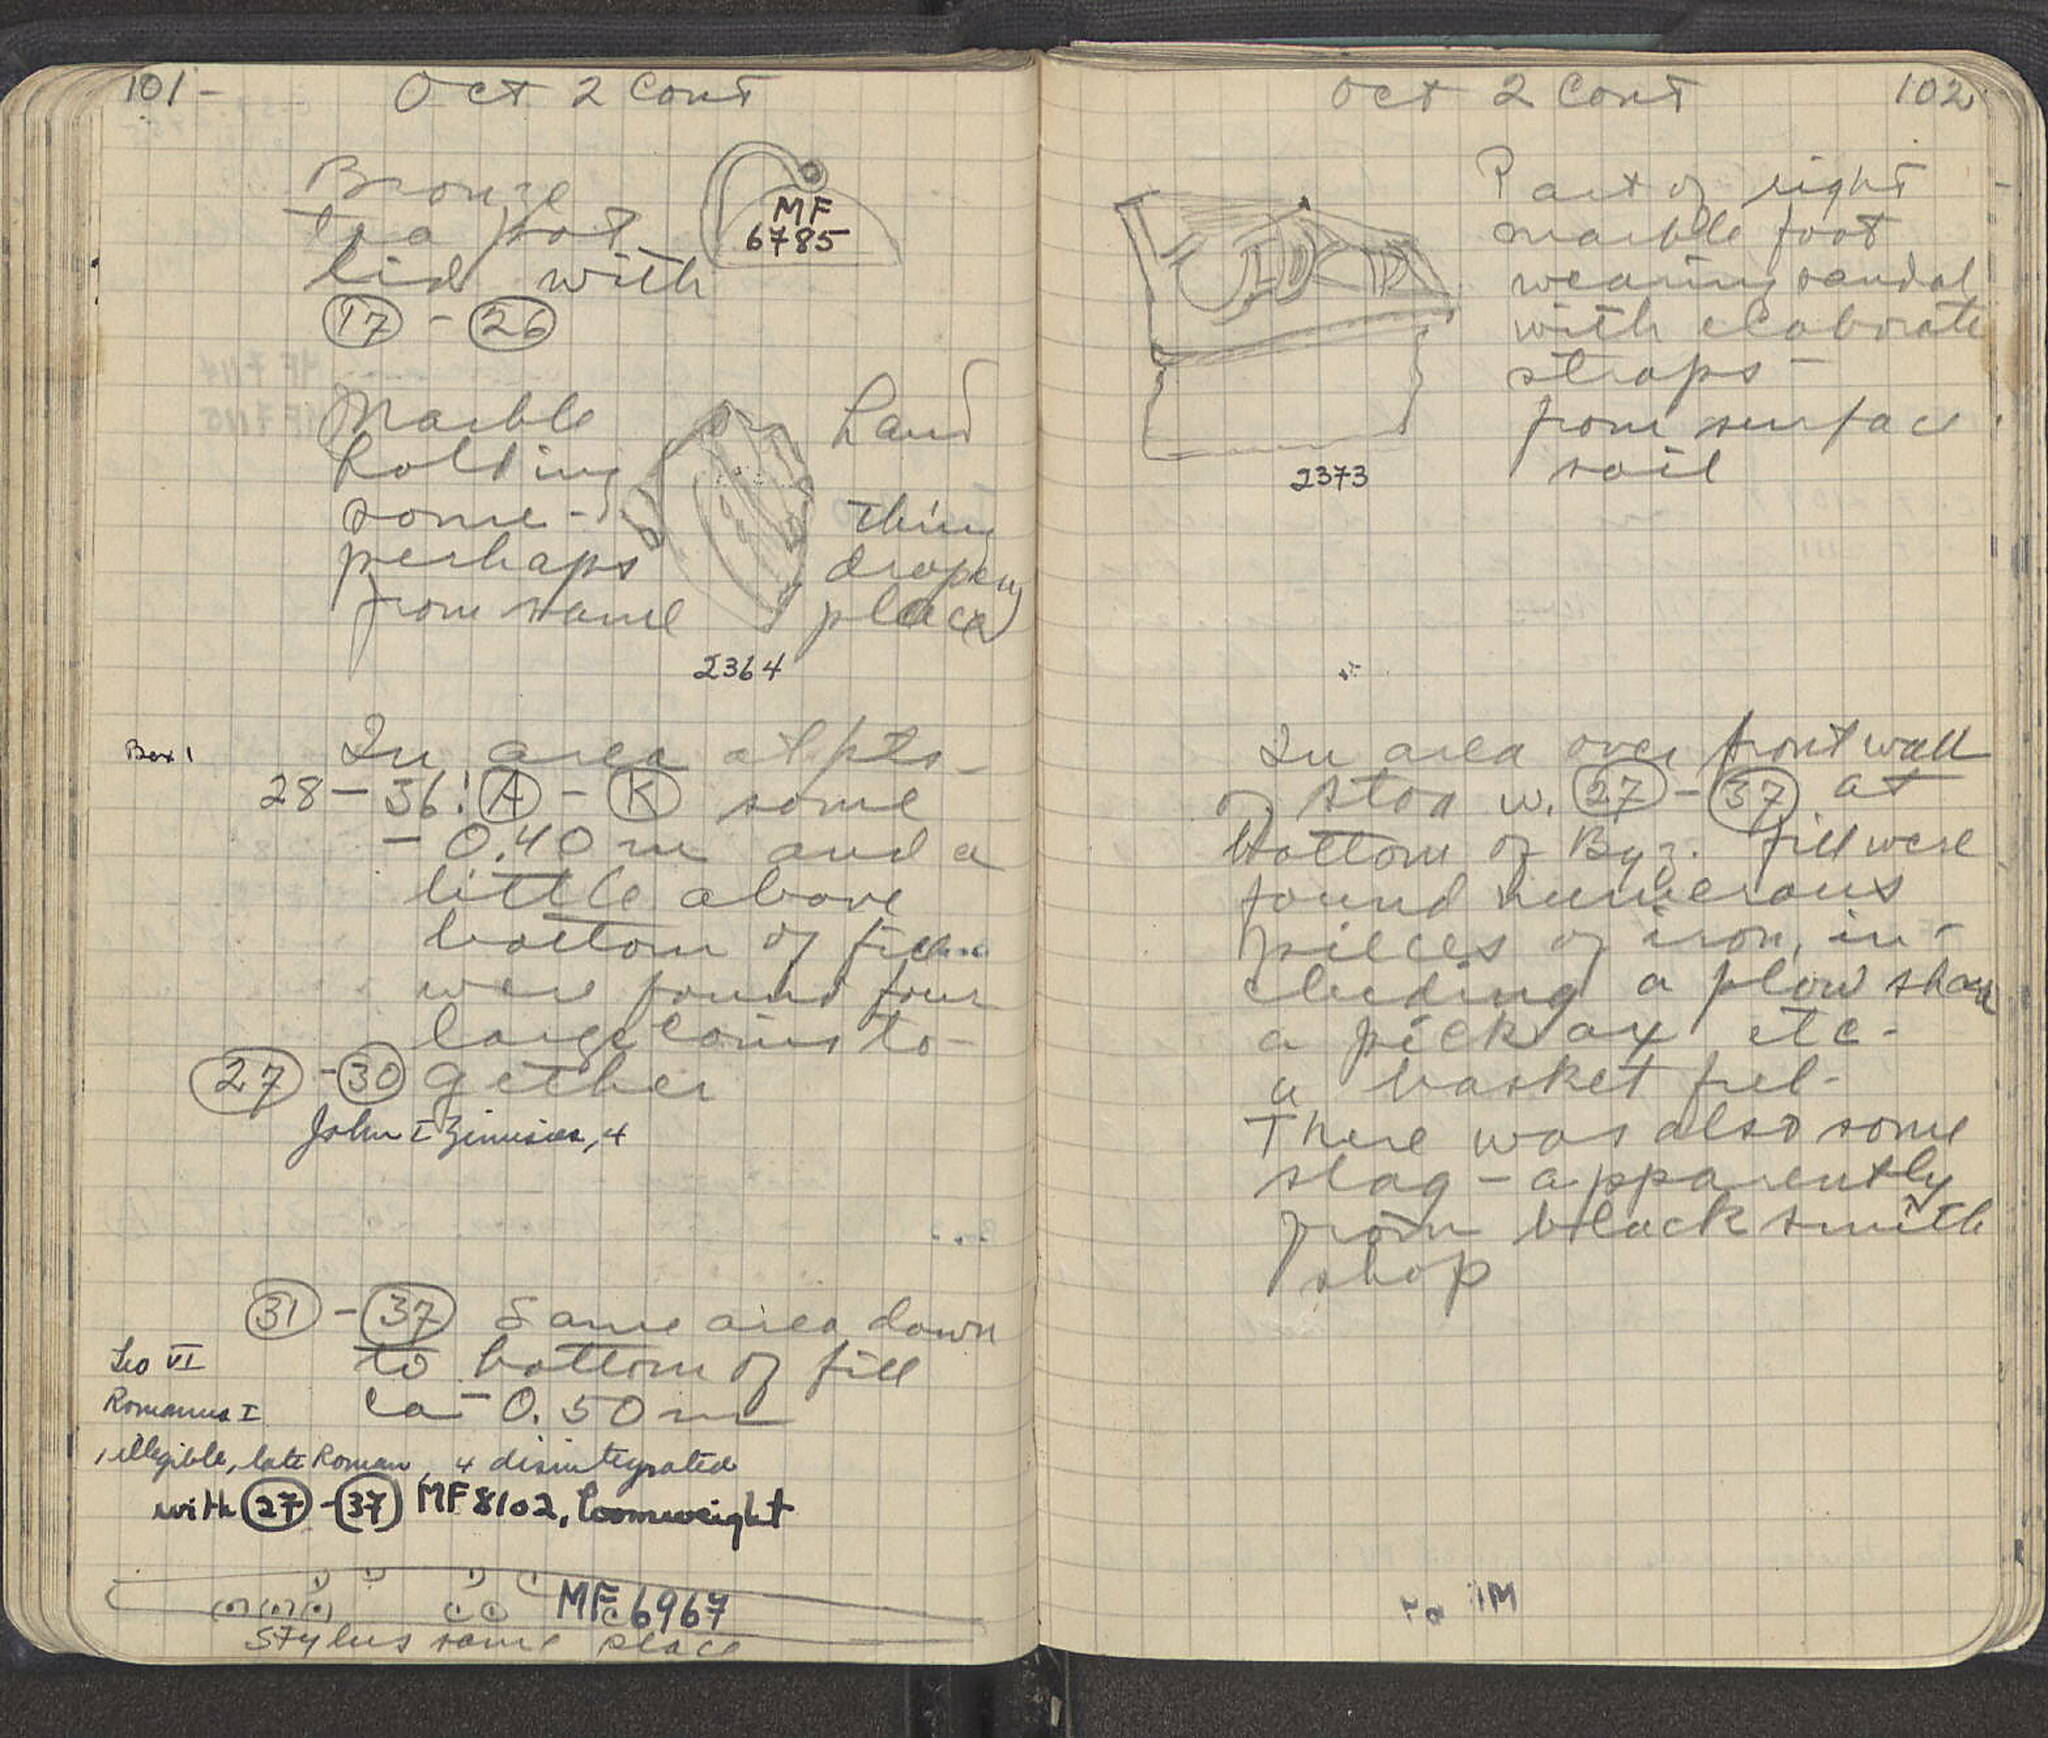 101-
Oct 2 Cont
Bronze
tea pot
lid with
17 - 26
MF
6785
Marble hand
holding
some- thing
perhaps drapery
from same place
2364
Box 1
In area at pts-
28-36: A - K some
- 0.40 m and a
little above
bottom of fill
were found four
large coins to-
27 - 30 gether
John I Zimisces, 4
31 - 37 Same area down
to bottom of fill
ca - 0.50 m
Leo VI
Romanus I
1 illegible, late Roman, 4 disintegrated
with 27 - 37 MF 8102, loomweight
MF 6967
Stylus same place
Oct 2 Cont
102
Part of right
marble foot
wearing sandal
with elaborate
straps -
from surface
soil
2373
In area over front wall
of stoa w. 27 - 37 at
bottom of Byz. fill were
found numerous
pieces of iron, in-
cluding a plow share
a pick ax etc -
a basket full -
There was also some
slag - apparently
from black smith
shop